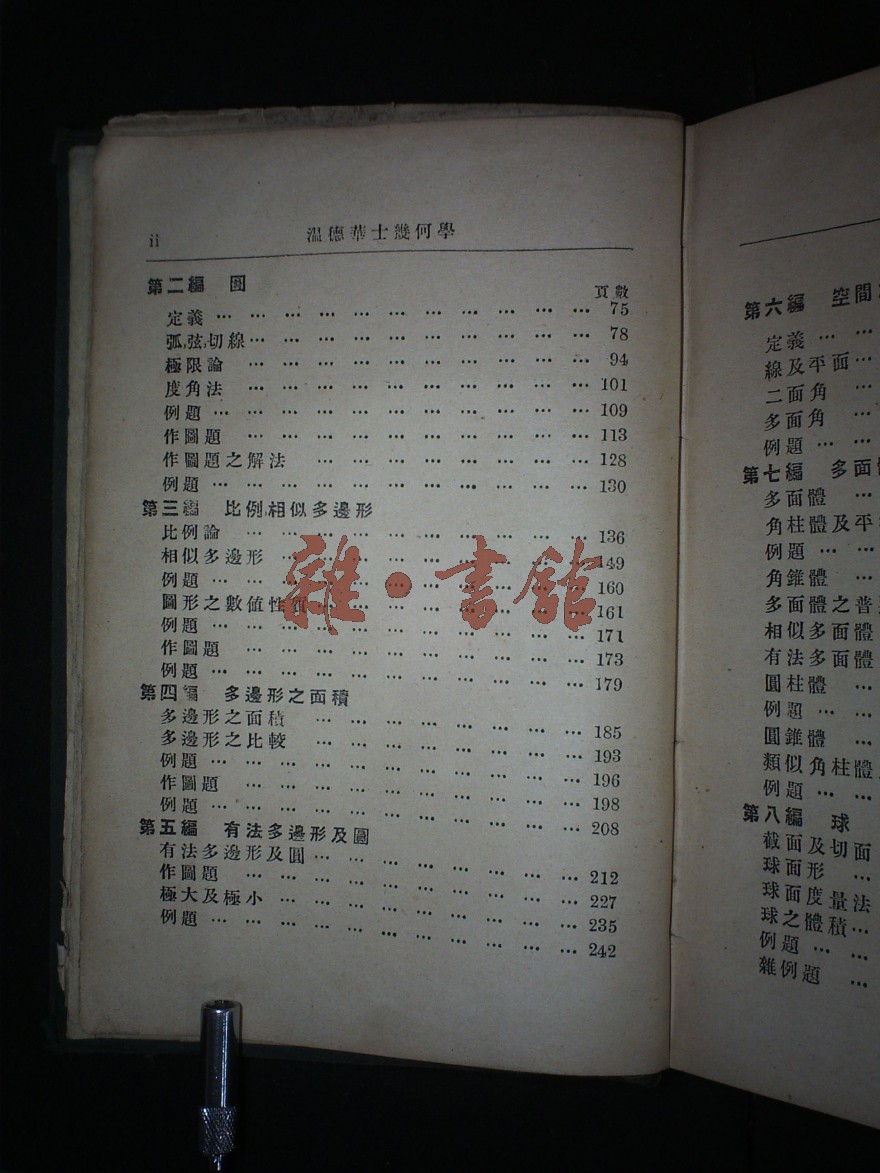 ii 溫德華士幾何學
第二編 圓 頁數
定義 … … … … … … … … … … … … 75
弧,弦,切線 … … … … … … … … … … … 78
極限論 … … … … … … … … … … … 94
度角法 … … … … … … … … … … … 101
例題 … … … … … … … … … … … … 109
作圖題 … … … … … … … … … … … 113
作圖題之解法 … … … … … … … … … 128
例題 … … … … … … … … … … … … 130
第三編 比例,相似多邊形
比例論 … … … … … … … … … … … 136
相似多邊形 … … … … … … … … … … 149
例題 … … … … … … … … … … … … 160
圖形之數值性質 … … … … … … … … … 161
例題 … … … … … … … … … … … … 171
作圖題 … … … … … … … … … … … 173
例題 … … … … … … … … … … … … 179
第四編 多邊形之面積
多邊形之面積 … … … … … … … … … 185
多邊形之比較 … … … … … … … … … 193
例題 … … … … … … … … … … … … 196
作圖題 … … … … … … … … … … … 198
例題 … … … … … … … … … … … … 208
第五編 有法多邊形及圓
有法多邊形及圓 … … … … … … … … … 212
作圖題 … … … … … … … … … … … 227
極大及極小 … … … … … … … … … … 235
例題 … … … … … … … … … … … … 242
雜·書館
第六編 空間
定義 … …
線及平面 …
二面角 …
多面角 …
例題 … …
第七編 多面
多面體 …
角柱體及平
例題 … …
角錐體 …
多面體之普
相似多面體
有法多面體
圓柱體 …
例題 … …
圓錐體 …
類似角柱體
例題 … …
第八編 球
截面及切面
球面形 …
球面度量法
球之體積 …
例題 … …
雜例題 …